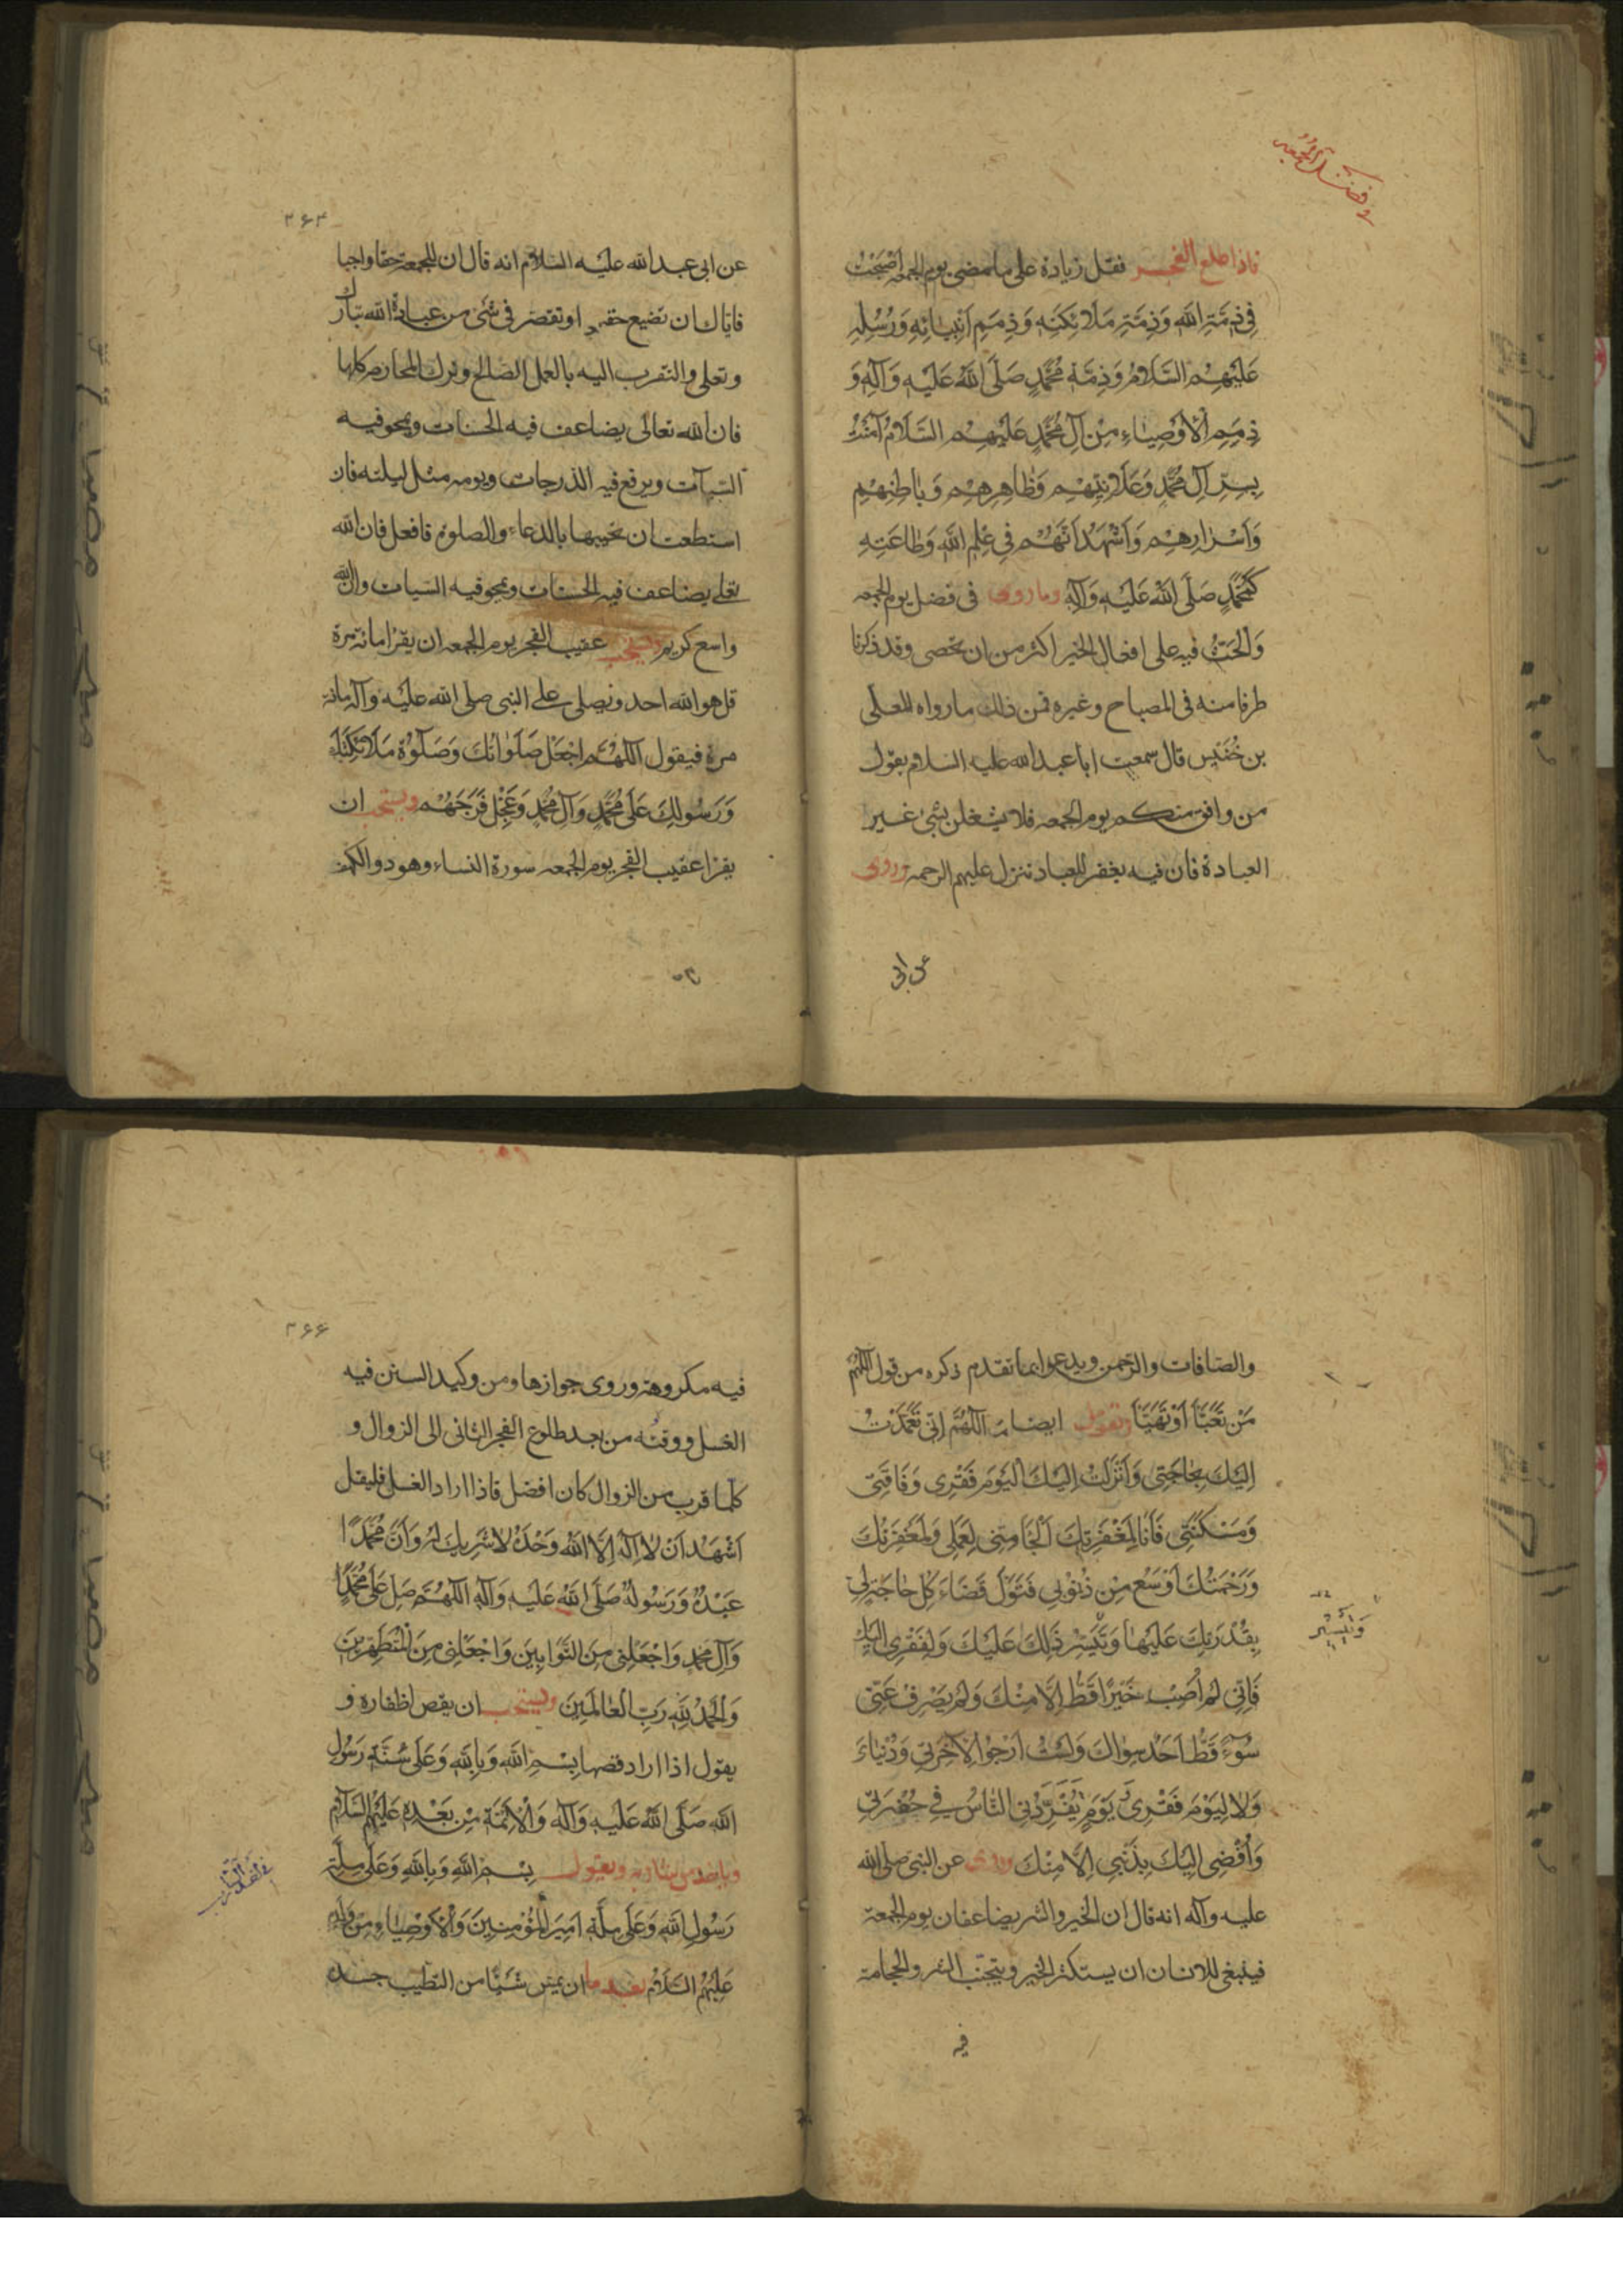 فاذا طلع الفجر فقل زيادة على ما مضى يوم الجمعه اَصْبَحْتُ
فِي ذِمَّةِ اللهِ وَذِمَّةِ مَلَائِكَتِهِ وَذِمَمِ اَنْبِيَائِهِ وَرُسُلِهِ
عَلَيْهِمُ السَّلَامُ وَذِمَّةِ مُحَمَّدٍ صَلَّى اللهُ عَلَيْهِ وَآلِهِ وَ
ذِمَمِ الْاَوْصِيَاءِ مِنْ آلِ مُحَمَّدٍ عَلَيْهِمُ السَّلَامُ آمَنْتُ
بِسِرِّ آلِ مُحَمَّدٍ وَعَلَانِيَتِهِمْ وَظَاهِرِهِمْ وَبَاطِنِهِمْ
وَاَسْرَارِهِمْ وَاَشْهَدُ اَنَّهُمْ فِي عِلْمِ اللهِ وَطَاعَتِهِ
كَمُحَمَّدٍ صَلَّى اللهُ عَلَيْهِ وَآلِهِ وما روى فى فضل يوم الجمعه
وَالحَثُّ فيه على افعال الخير اكثر من ان تحصى وقد ذكرنا
طرفا منه فى المصباح وغيره فمن ذلك ما رواه المعلى
بن خُنَيْس قال سمعت ابا عبد الله عليه السلام يقول
من وافق منكم يوم الجمعه فلا يشغلن بشئ غير
العبادة فان فيه يغفر للعباد تنزل عليهم الرحمه وروى
عن ابى
۲۶۴
عن ابى عبد الله عليه السلام انه قال ان للجمعة حقا واجبا
فاياك ان تضيع حقه او تقصر فى شئ من عبادة الله تبارك
وتعلى والتقرب اليه بالعمل الصالح وترك المحارم كلها
فان الله تعالى يضاعف فيه الحسنات ويمحو فيه
السيآت ويرفع فيه الدرجات ويومه مثل ليلته فان
استطعت ان تحييها بالدعاء والصلوة فافعل فان الله
تعلى يضاعف فيه الحسنات ويمحو فيه السيات وان الله
واسع كريم ويستحب عقيب الفجر يوم الجمعه ان يقرا مائة مرة
قل هو الله احد ويصلى على النبى صلى الله عليه وآله مائة
مرة فيقول اَللّٰهُمَّ اجْعَلْ صَلَوَاتَكَ وَصَلَوٰةَ مَلَائِكَتِكَ
وَرَسُولِكَ عَلَى مُحَمَّدٍ وَآلِ مُحَمَّدٍ وَعَجِّلْ فَرَجَهُمْ ويستحب ان
يقرا عقيب الفجر يوم الجمعه سورة النساء وهود والكهف
والصافات والرحمن ويدعو بما تقدم ذكره من قول اللّٰهُمَّ
مَنْ تَعَبَّأَ اَوْ تَهَيَّأَ وتقول ايضا اَللّٰهُمَّ اِنِّي تَعَمَّدْتُ
اِلَيْكَ بِحَاجَتِي وَاَنْزَلْتُ اِلَيْكَ الْيَوْمَ فَقْرِي وَفَاقَتِي
وَمَسْكَنَتِي فَاَنَا لِمَغْفِرَتِكَ اَرْجَا مِنِّي لِعَمَلِي وَلَمَغْفِرَتُكَ
وَرَحْمَتُكَ اَوْسَعُ مِنْ ذُنُوبِي فَتَوَلَّ قَضَاءَ كُلِّ حَاجَةٍ لِي
بِقُدْرَتِكَ عَلَيْهَا وَتَيَسُّرِ ذٰلِكَ عَلَيْكَ وَلِفَقْرِي اِلَيْكَ
فَاِنِّي لَمْ اُصِبْ خَيْرًا قَطُّ اِلَّا مِنْكَ وَلَمْ يَصْرِفْ عَنِّي
سُوءً قَطُّ اَحَدٌ سِوَاكَ وَلَسْتُ اَرْجُو لِآخِرَتِي وَدُنْيَاىَ
وَلَا لِيَوْمِ فَقْرِي يَوْمَ يُفْرِدُنِي النَّاسُ فِي حُفْرَتِي
وَاُفْضِي اِلَيْكَ بِذَنْبِي اِلَّا مِنْكَ وروى عن النبى صلى الله
عليه وآله انه قال ان الخير والشر يضاعفان يوم الجمعة
فينبغى للانسان ان يستكثر الخير ويتجنب الشر والحجامة
فيه
۲۶۶
فيه مكروهة وروى جوازها ومن وكيد السنن فيه
الغسل ووقته من بعد طلوع الفجر الثانى الى الزوال و
كلما قرب من الزوال كان افضل فاذا اراد الغسل فليقل
اَشْهَدُ اَنْ لَا اِلٰهَ اِلَّا اللهُ وَحْدَهُ لَا شَرِيكَ لَهُ وَاَنَّ مُحَمَّدًا
عَبْدُهُ وَرَسُولُهُ صَلَّى اللهُ عَلَيْهِ وَآلِهِ اَللّٰهُمَّ صَلِّ عَلَى مُحَمَّدٍ
وَآلِ مُحَمَّدٍ وَاجْعَلْنِي مِنَ التَّوَّابِينَ وَاجْعَلْنِي مِنَ الْمُتَطَهِّرِينَ
وَالْحَمْدُ لِلّٰهِ رَبِّ الْعَالَمِينَ ويستحب ان يقص اظفاره و
يقول اذا اراد قصها بِسْمِ اللهِ وَبِاللهِ وَعَلَى سُنَّةِ رَسُولِ
اللهِ صَلَّى اللهُ عَلَيْهِ وَآلِهِ وَالْاَئِمَّةِ مِنْ بَعْدِهِ عَلَيْهِمُ السَّلَامُ
وياخذ من شاربه ويقول بِسْمِ اللهِ وَبِاللهِ وَعَلَى مِلَّةِ
رَسُولِ اللهِ وَعَلَى مِلَّةِ اَمِيرِ الْمُؤْمِنِينَ وَالْاَوْصِيَاءِ مِنْ وُلْدِهِ
عَلَيْهِمُ السَّلَامُ بعد ما ان يمس شَيْئًا من الطيب جسده